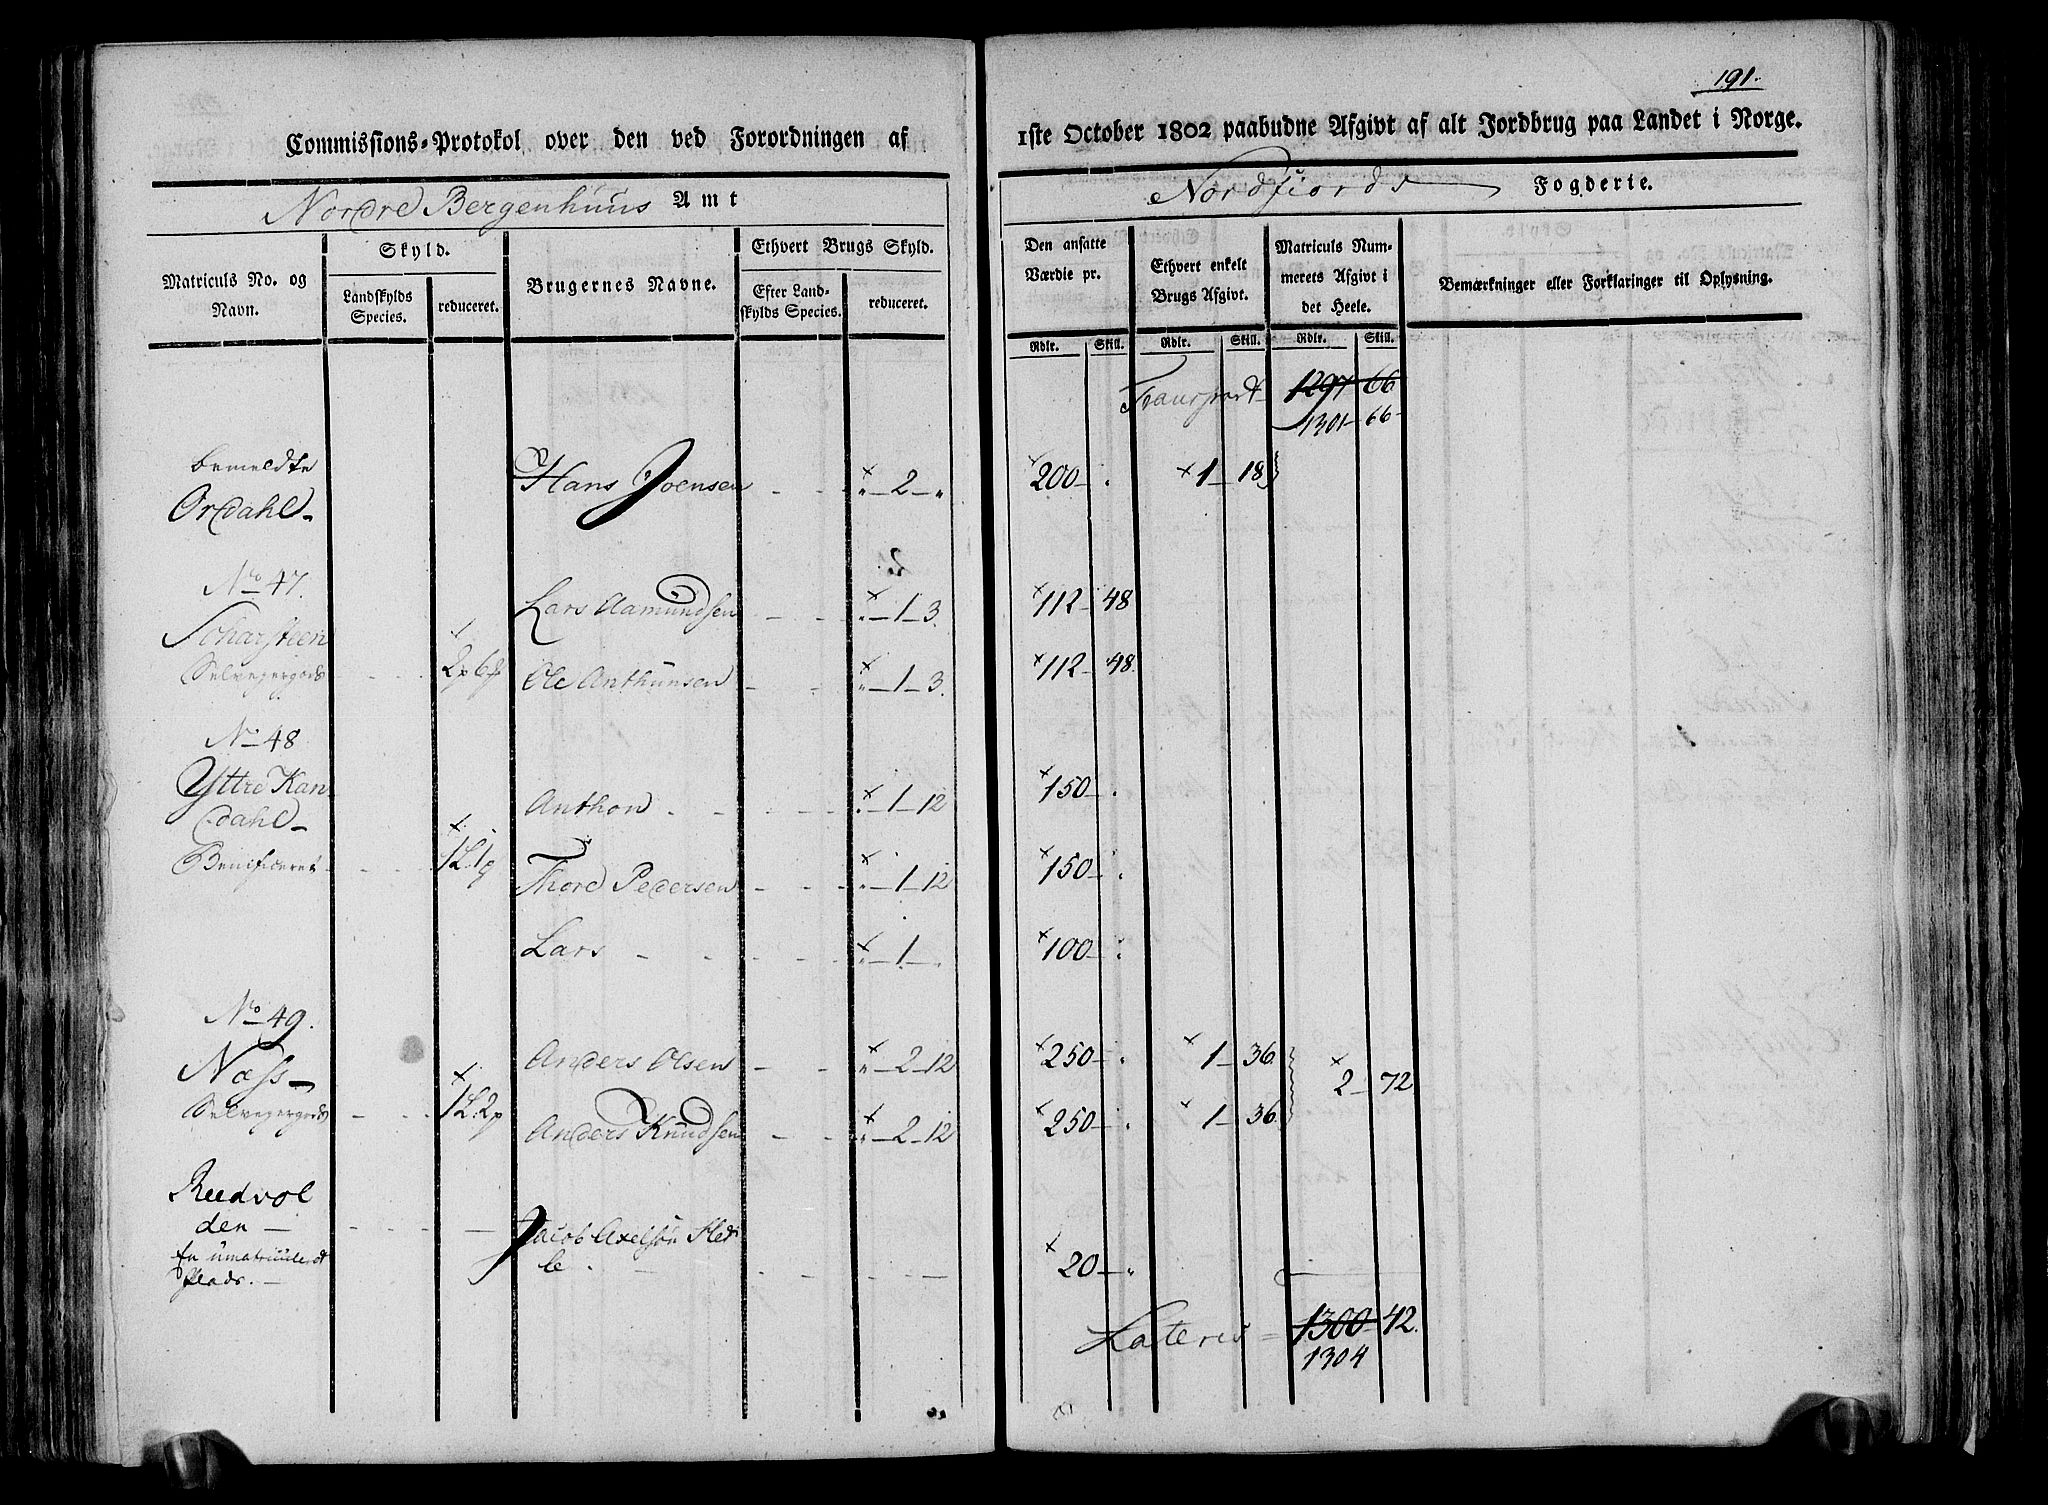 191.
Commissions-Protokol over den ved Forordningen af 1ste October 1802 paabudne Afgivt af alt Jordbrug paa Landet i Norge.
Nordre Bergenhuus Amt
Nordfiords Fogderie.
Matriculs No. og Navn.
Skyld.
Landskylds Species.
reduceret.
Brugernes Navne.
Ethvert Brugs Skyld.
Efter Landskylds Species.
reduceret.
Den ansatte Værdie pr.
Ethvert enkelt Brugs Afgivt.
Matriculs Nummerets Afgivt i det Heele.
Bemærkninger eller Forklaringer til Oplysning.
Rdlr. Skill. Rdlr. Skill. Rdlr. Skill.
Transport 1297 66
1301 66
bemeldte
Ordahl
Hans Joensen " 2 " 200 " 1 18
No 47.
Lars Aamundsen " 1 3. 112 48
Scharsteen
Selvejergods 2p 6
Ole Anthunsen " 1 3. 112 48.
No 48
Yttre Kan
dahl
Anthon " 1 12 150 "
Benificeret 1L. 1p
Thore Pedersen " 1 12 150 "
Lars " 1 " 100 "
No 49.
Næss
Anders Olsen " 2 12 250 " 1 36.
2 72
Selvejergods 1L. 2p
Anders Knudsen " 2 12 250 " 1 36.
Reedvol
den
Jacob Axelsøn
En umatriculeret
Plads. 20 "
Lateris = 1300 42.
1304